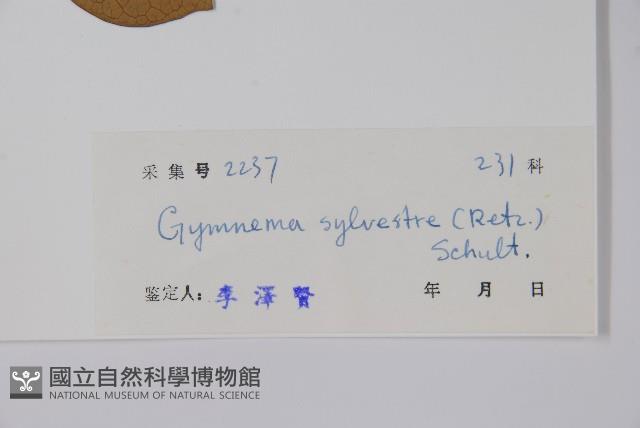 采集号 2237 231 科
Gymnema sylvestre (Retz.)
Schult.
鉴定人: 李澤賢 年 月 日
國立自然科學博物館
NATIONAL MUSEUM OF NATURAL SCIENCE